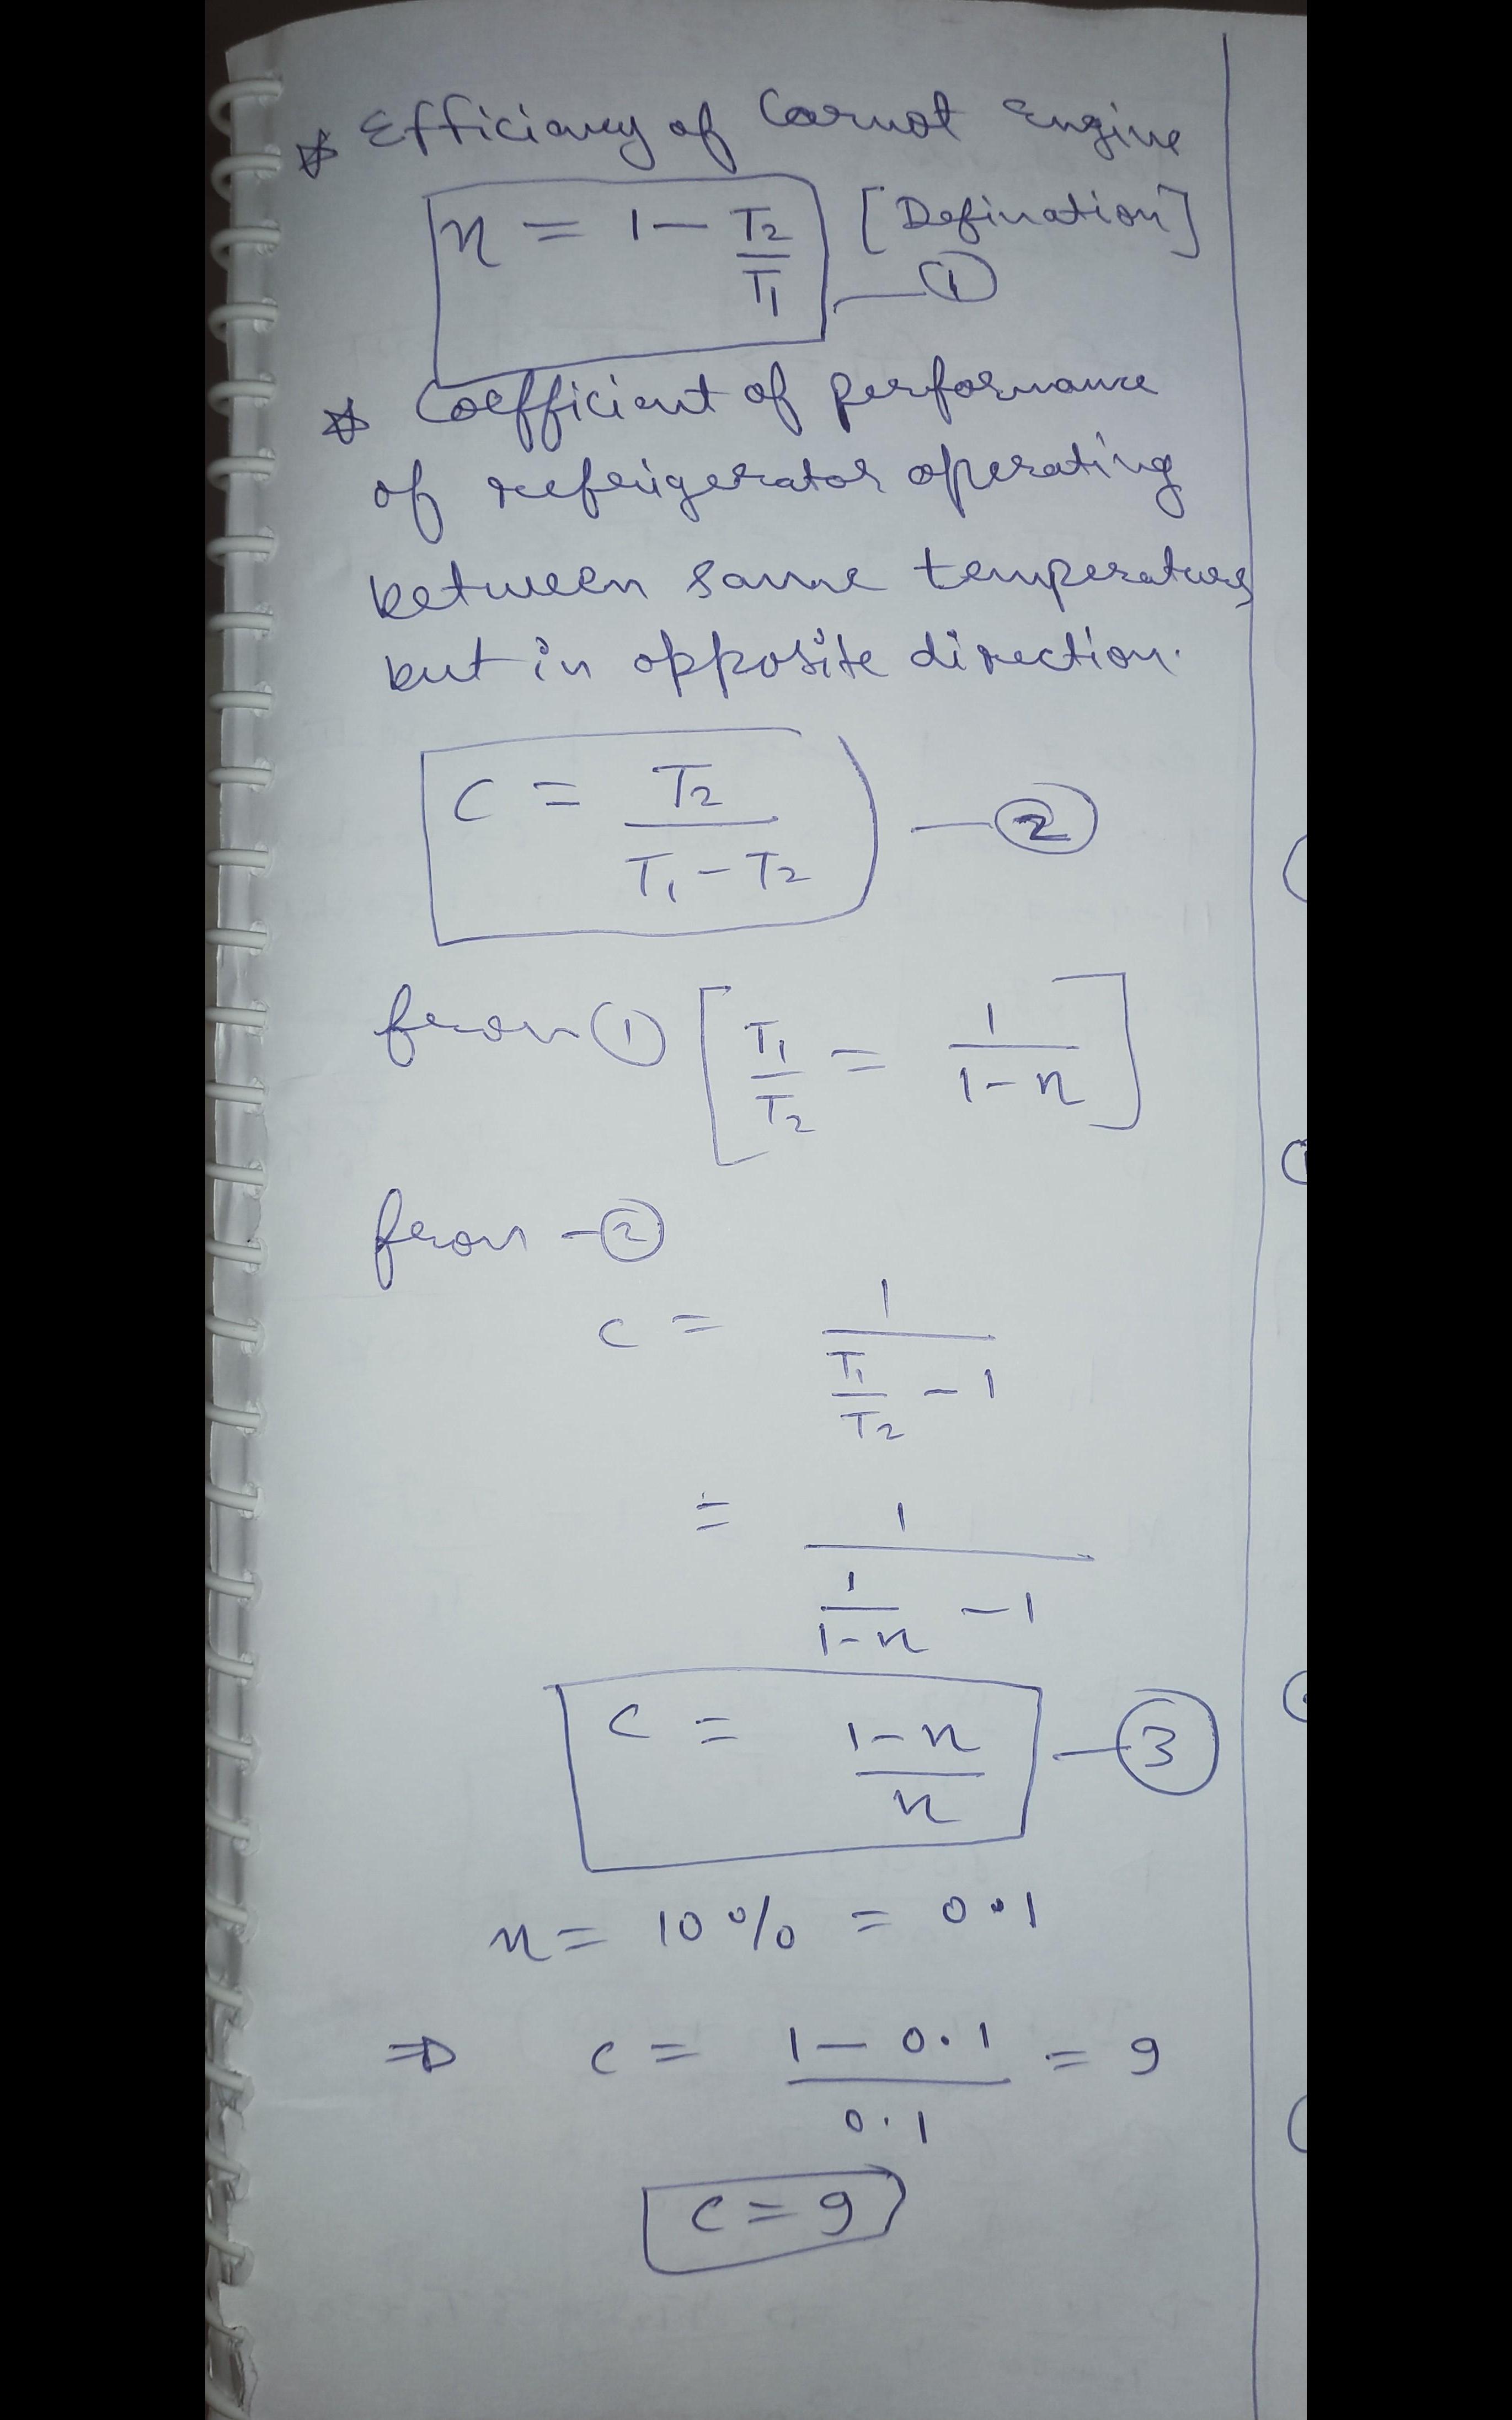 * Efficiency of Carnot Engine
η = 1 - T2/T1 [Defination] — ①
* Coefficient of performance
of refrigerator operating
between same temperatures
but in opposite direction.
C = T2/(T1 - T2) — ②
from ① [T1/T2 = 1/(1-η)]
from - ②
C = 1/(T1/T2 - 1)
= 1/(1/(1-η) - 1)
C = (1-η)/η — ③
η = 10% = 0.1
⇒ C = (1 - 0.1)/0.1 = 9
C = 9